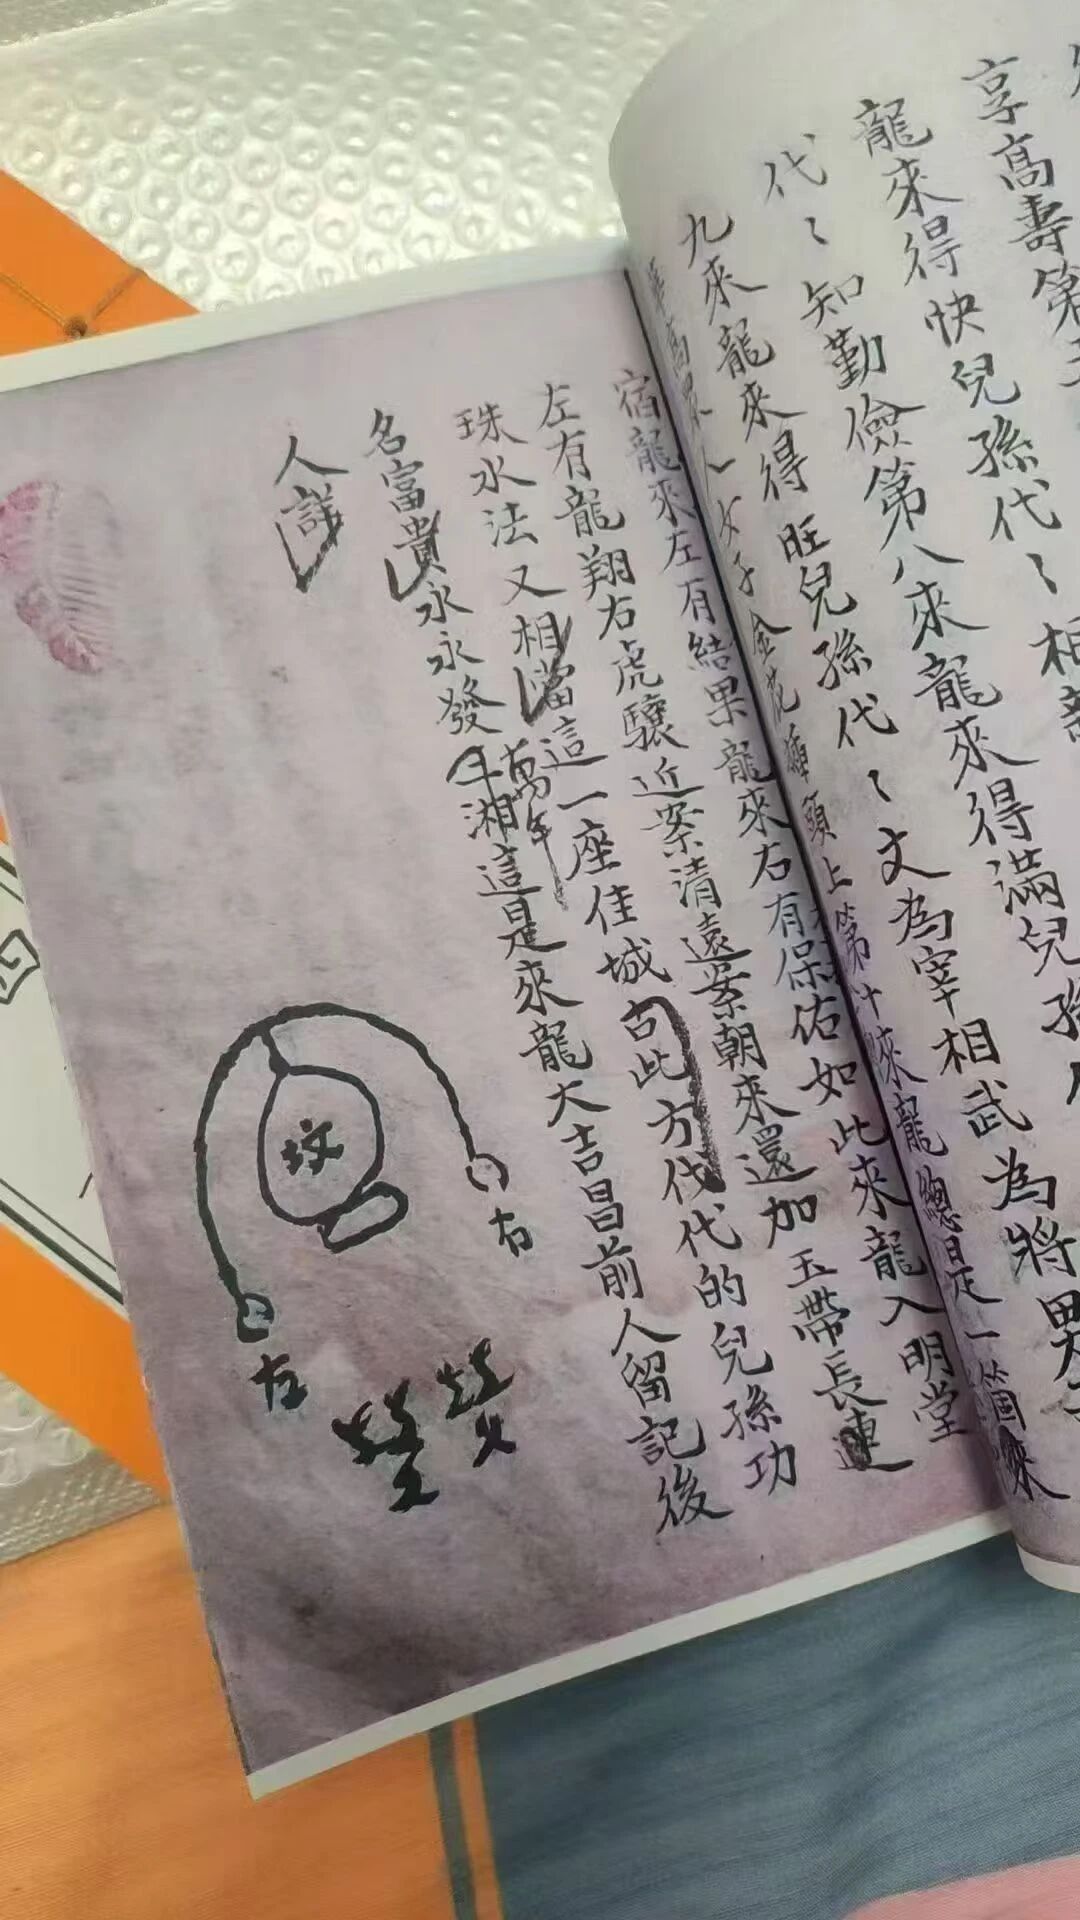 享高壽第
龍來得快兒孫代〻相
代〻知勤儉第八來龍來得滿兒孫
九來龍來得旺兒孫代〻文為宰相武為將男
女子金花插頭上第十來龍總是一箇來
宿龍來左有結果龍來右有保佑如此來龍入明堂
左有龍翔右虎驤近案清遠案朝來還加玉帶長連
珠水法又相當這一座佳城占此方代代的兒孫功
名富貴永永發萬年湘這是來龍大吉昌前人留記後
人詳
坟
右
左